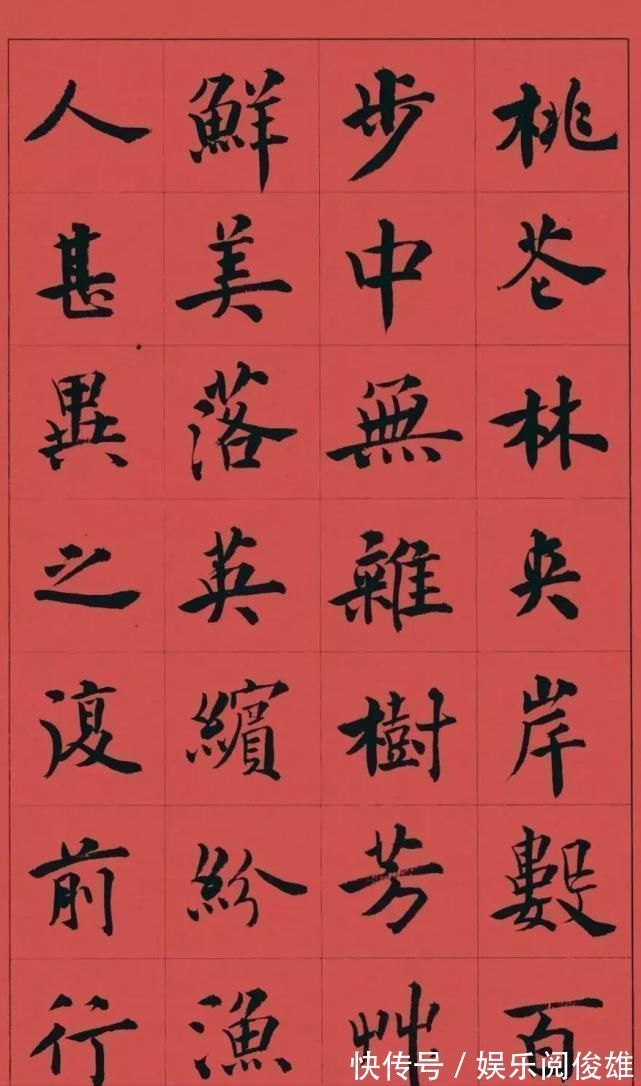 桃花林夾岸數百
步中無雜樹芳艸
鮮美落英繽紛漁
人甚異之復前行
快传号 / 娱乐阅俊雄